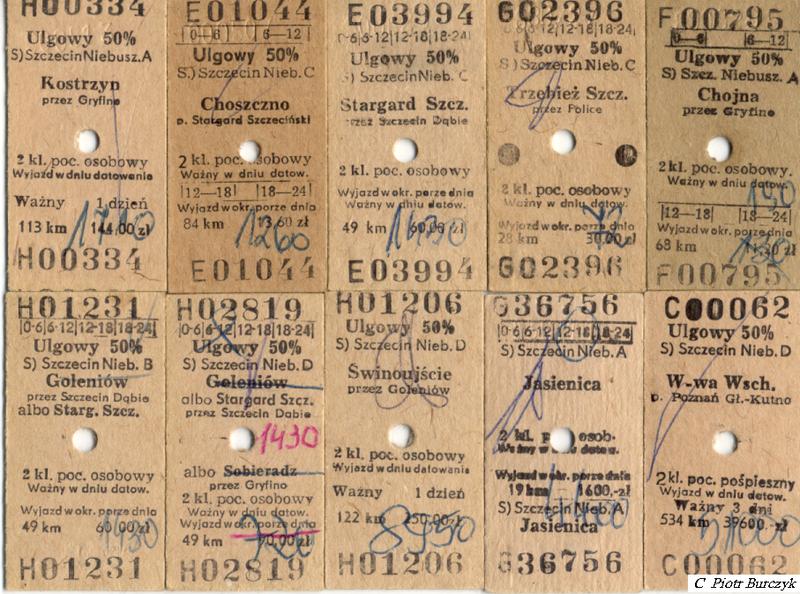 H00334
Ulgowy 50%
S) Szczecin Niebusz. A
Kostrzyn
przez Gryfino
2 kl. poc. osobowy
Wyjazd w dniu datowania
Ważny 1 dzień
113 km 144,00 zł
H00334
E01044
|0—6| |6—12|
Ulgowy 50%
S.) Szczecin Nieb. C
Choszczno
p. Stargard Szczeciński
2 kl. poc. osobowy
Ważny w dniu datow.
|12—18| |18—24|
Wyjazd w okr. porze dnia
84 km 13,60 zł
1260
E01044
E03994
0-6|6-12|12-18|18-24|
Ulgowy 50%
S.) Szczecin Nieb. C
Stargard Szcz.
przez Szczecin Dąbie
2 kl. poc. osobowy
Ważny w dniu datow.
Wyjazd w okr. porze dnia
49 km 60,00 zł
1430
E03994
G02396
0-6|6-12|12-18|18-24|
Ulgowy 50%
S.) Szczecin Nieb. C
Trzebież Szcz.
przez Police
2 kl. poc. osobowy
Ważny w dniu datow.
Wyjazd w okr. porze dnia
28 km 30,00 zł
G02396
F00795
|0—6| |6—12|
Ulgowy 50%
S) Szcz. Niebusz. A
Chojna
przez Gryfino
2 kl. poc. osobowy.
Ważny w dniu datow.
|12—18| |18—24|
Wyjazd w okr. porze dnia
68 km
F00795
H01231
|0-6|6-12|12-18|18-24|
Ulgowy 50%
S) Szczecin Nieb. B
Goleniów
przez Szczecin Dąbie
albo Starg. Szcz.
2 kl. poc. osobowy
Ważny w dniu datow.
Wyjazd w okr. porze dnia
49 km 60,00 zł
1430
H01231
H02819
|0-6|6-12|12-18|18-24|
Ulgowy 50%
S) Szczecin Nieb. D
Goleniów
albo Stargard Szcz.
przez Szczecin Dąbie
1430
albo Sobieradz
przez Gryfino
2 kl. poc. osobowy
Ważny w dniu datow.
Wyjazd w okr. porze dnia
49 km 60,00 zł
720
H02819
H01206
Ulgowy 50%
S) Szczecin Nieb. D
Świnoujście
przez Goleniów
2 kl. poc. osobowy
Wyjazd w dniu datowania
Ważny 1 dzień
122 km 150,00 zł
H01206
G36756
|0-6|6-12|12-18|18-24|
Ulgowy 50%
S) Szczecin Nieb. A
Jasienica
2 kl. poc. osob.
Ważny w dniu datow.
Wyjazd w okr. porze dnia
19 km 1600,-zł
S) Szczecin Nieb. A
Jasienica
G36756
C00062
Ulgowy 50%
S) Szczecin Nieb. D
W-wa Wsch.
p. Poznań Gł.-Kutno
2 kl. poc. pośpieszny
Wyjazd w dniu datow.
Ważny 3 dni
534 km 39600,-zł
C00062
C Piotr Burczyk